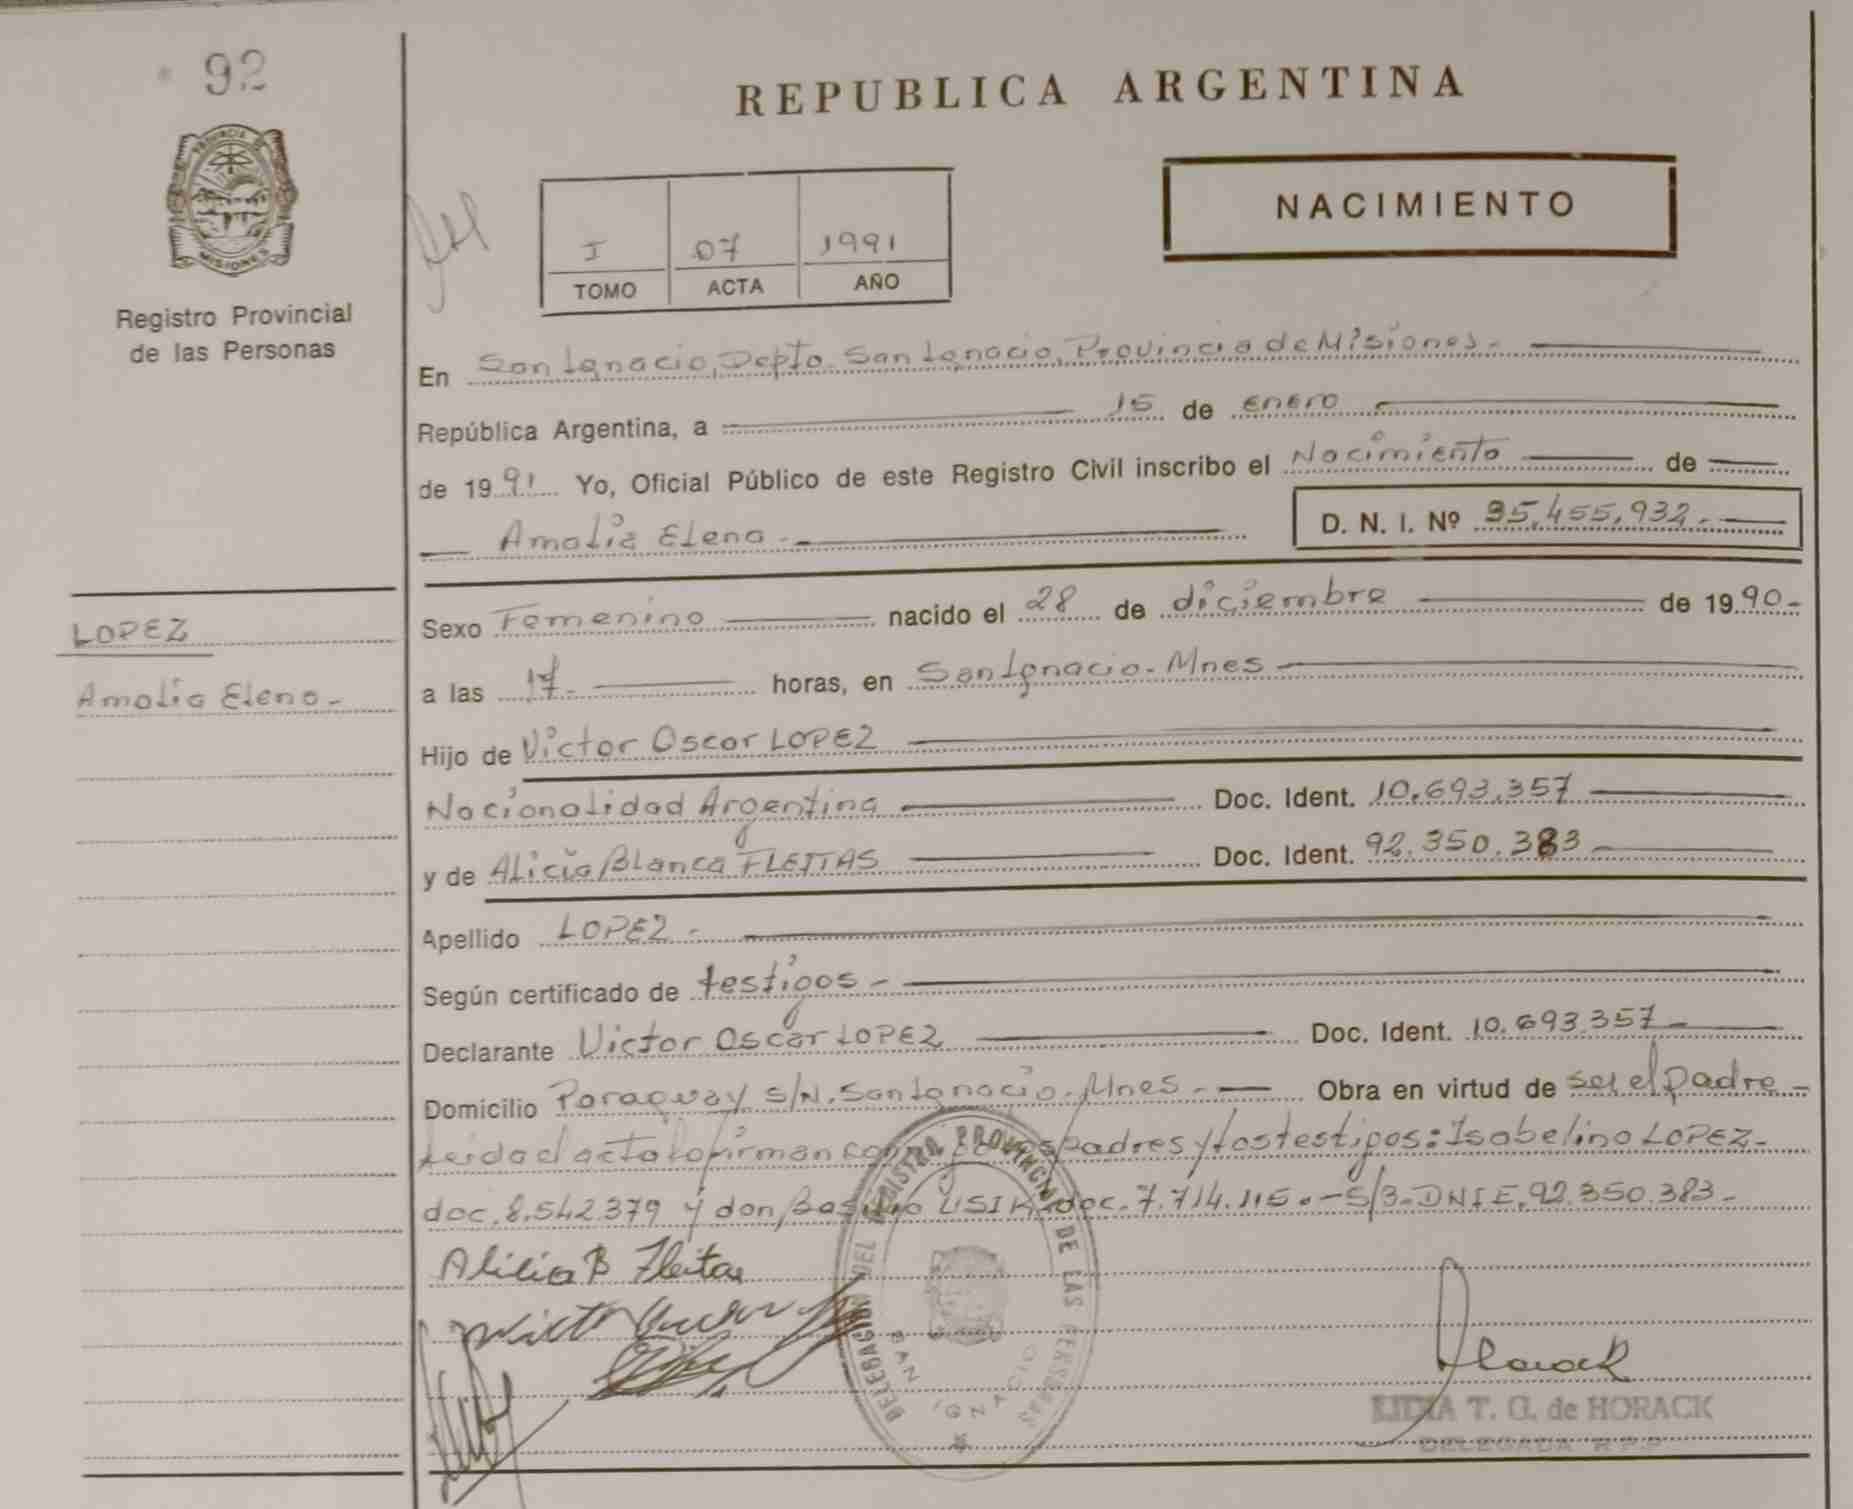 92
PROVINCIA DE
MISIONES
Registro Provincial
de las Personas
LOPEZ
Amalia Elena.-
REPUBLICA ARGENTINA
NACIMIENTO
I 07 1991
TOMO ACTA AÑO
En San Ignacio, Depto. San Ignacio, Provincia de Misiones.-
República Argentina, a 15 de enero
de 1991 Yo, Oficial Público de este Registro Civil inscribo el Nacimiento de
Amalia Elena.- D. N. I. Nº 35.455.932.-
Sexo Femenino nacido el 28 de diciembre de 1990.-
a las 17.- horas, en San Ignacio.- Mnes
Hijo de Victor Oscar LOPEZ
Nacionalidad Argentina Doc. Ident. 10.693.357
y de Alicia Blanca FLEITAS Doc. Ident. 92.350.383
Apellido LOPEZ.-
Según certificado de testigos.-
Declarante Victor Oscar LOPEZ Doc. Ident. 10.693.357.-
Domicilio Paraguay s/N. San Ignacio.- Mnes.- Obra en virtud de ser el padre.-
Leida el acta la firman padres y los testigos: Isabelino LOPEZ.-
doc. 8.542.379 y don Basilio USIK doc. 7.714.115.- S/B. DNIE. 92.350.383.-
Alicia B Fleitas
DELEGACION DEL REGISTRO PROVINCIAL DE LAS PERSONAS
SAN IGNACIO
LIDIA T. G. de HORACK
DELEGADA R.P.P